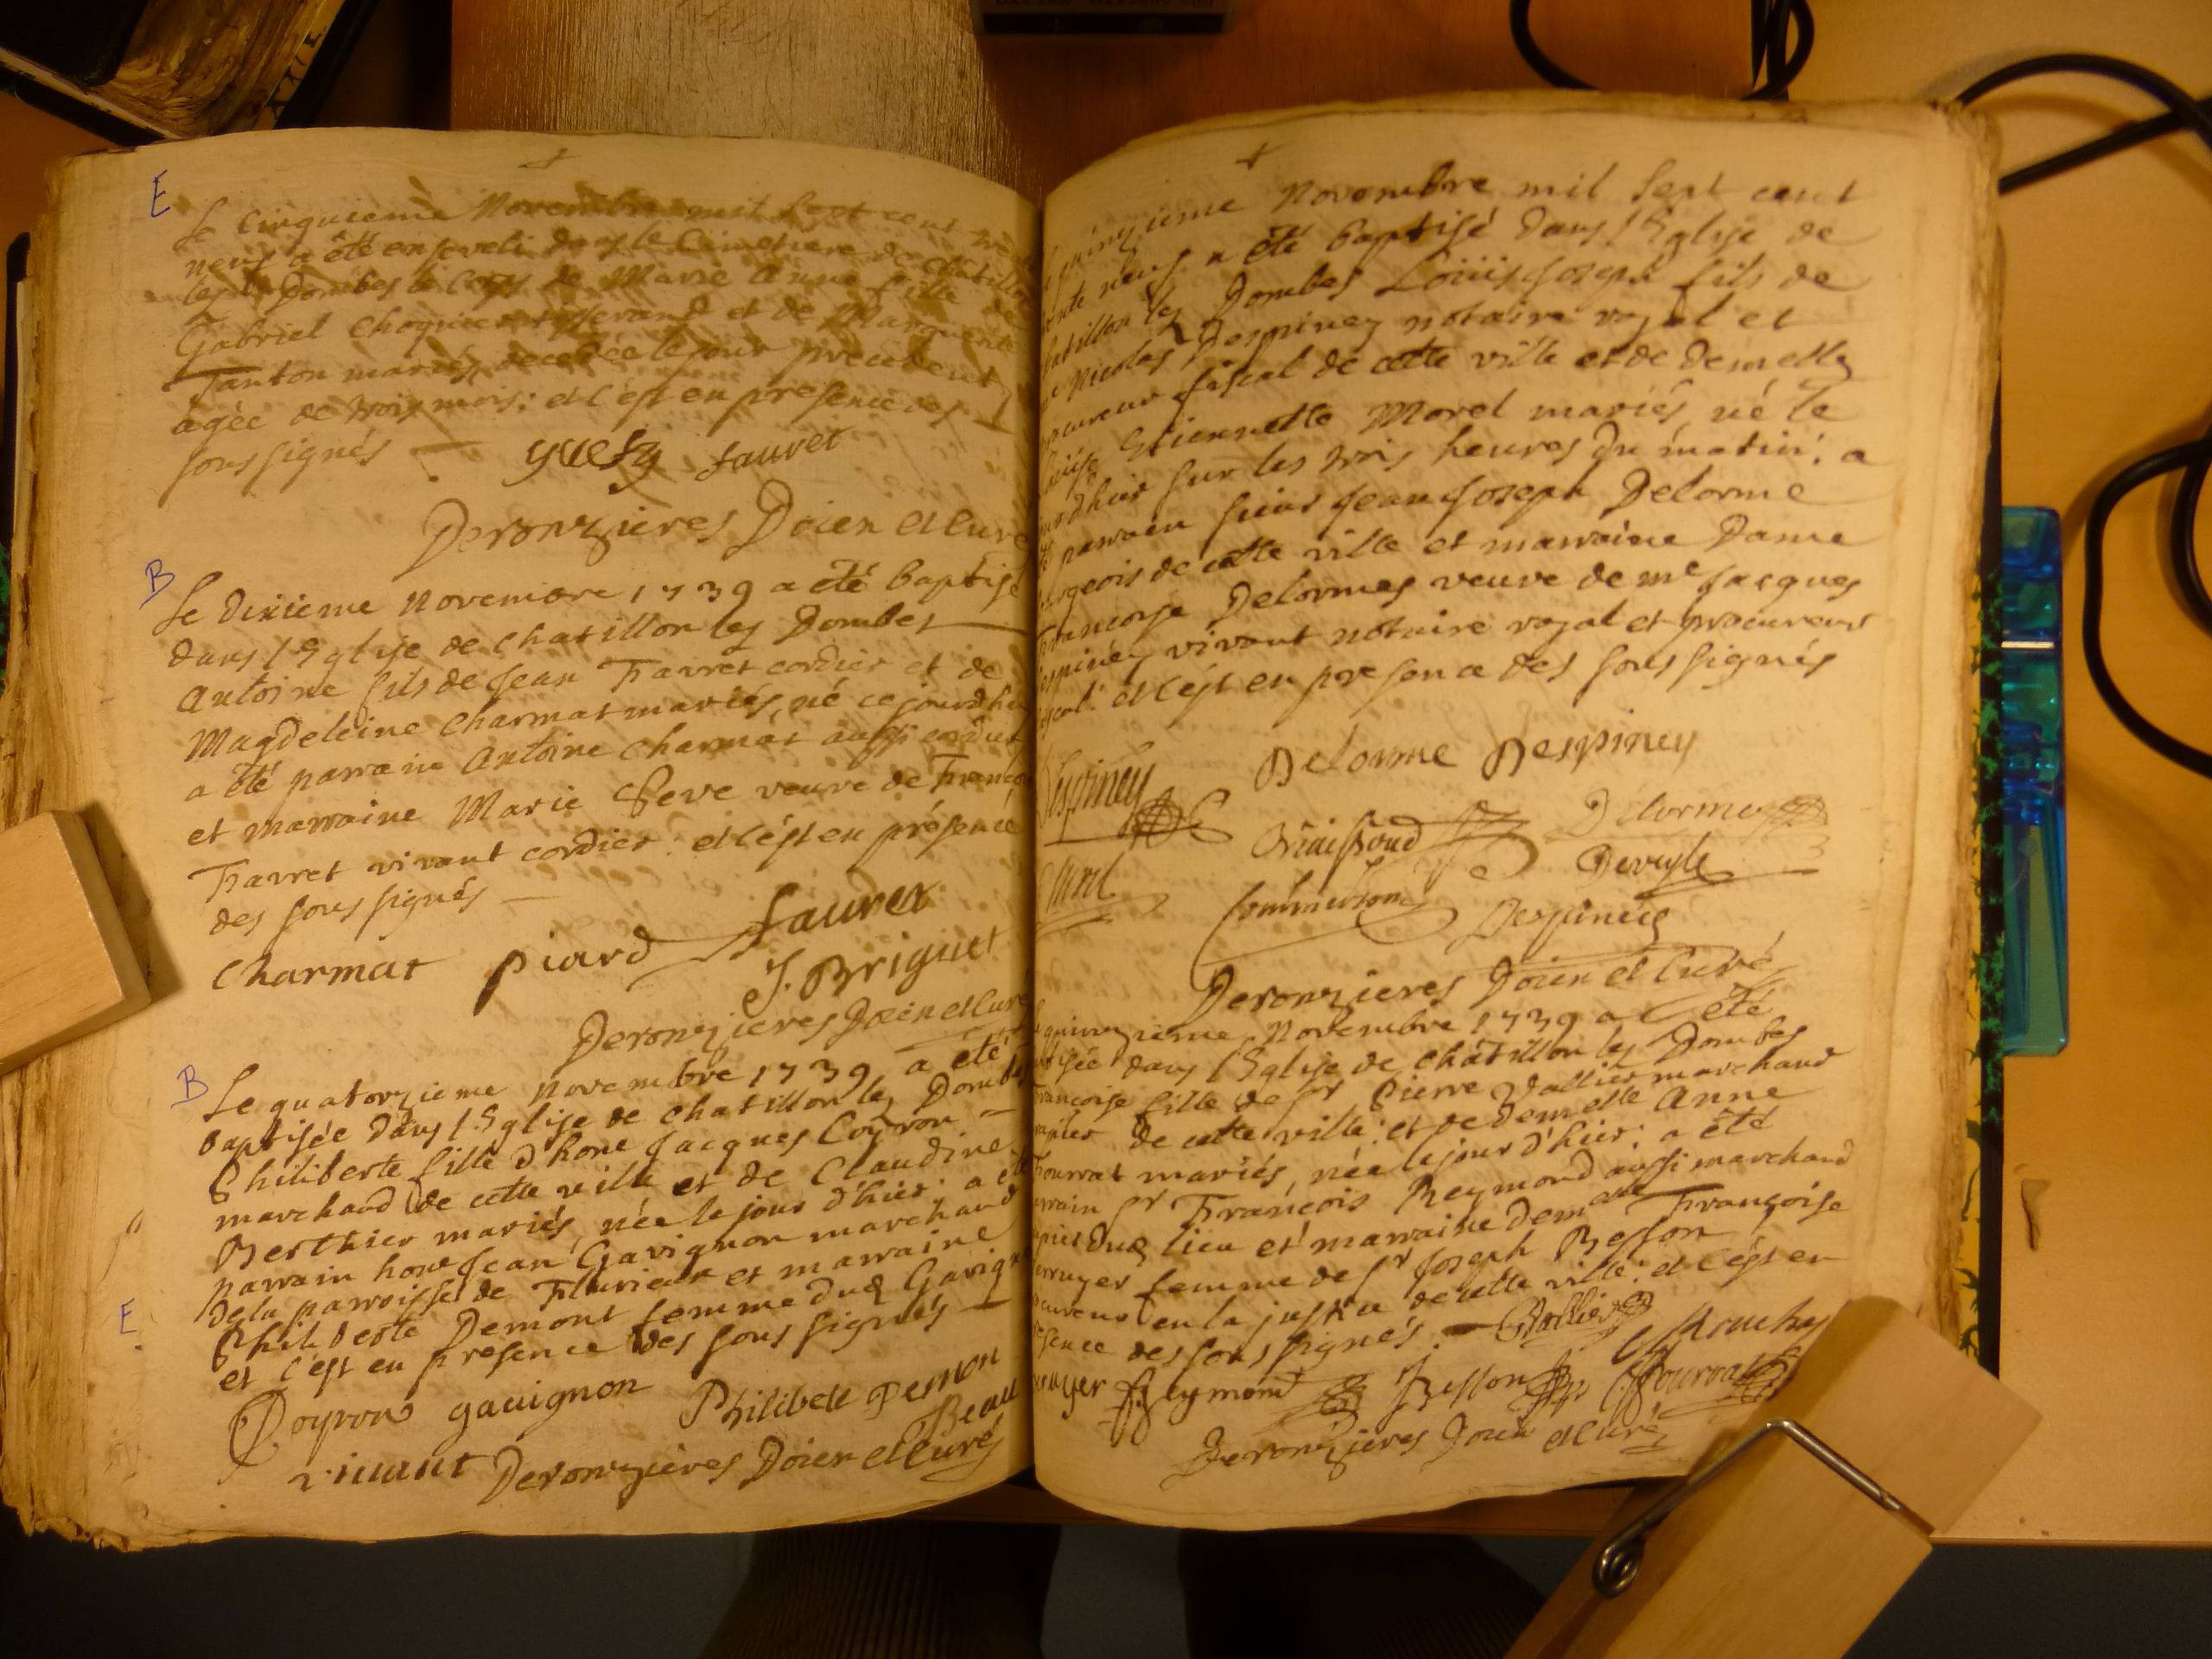 E
Le Cinquieme Novembre mil sept cent
neuf a été enseveli dans le Cimetiere de Chatillon
les Dombes le Corps de Marie Anne fille de
Gabriel Chognier tisserand et de Marguerite
Janton mariés, decedée le jour precedent
agée de trois mois: et c'est en presence des
soussignés
sauvet
Deronzieres Doien et Curé
B
Le dixieme novembre 1739 a été baptisé
dans l'Eglise de Chatillon les Dombes
Antoine fils de Jean Favret cordier et de
Magdeleine Charmat mariés, né ce jourd'hui
a été parrain Antoine Charmat aussi cordier
et marraine Marie Seve veuve de François
Favret vivant cordier: et c'est en présence
des soussignés
Charmat piard Sauvet
J. Briguet
Deronzieres Doien et Curé
B
Le quatorzieme novembre 1739 a été
baptisée dans l'Eglise de Chatillon les Dombes
Philiberte fille d'hone Jacques Coyron
marchand de cette ville et de Claudine
Berthier mariés, née le jour d'hier: a été
parrain hone Jean Gavignon marchand
de la parroisse de Flurieux et marraine
E
Philiberte Demont femme dud Gavignon
et c'est en presence des soussignés
Coyron gauignon Philibert Demon
Beau
vinant Deronzieres Doien et Curé
quinzieme Novembre mil sept cent
trente neuf a été baptisé dans l'Eglise de
Chatillon les Dombes Loüis Joseph fils de
Me Nicolas Despiney notaire royal et
procureur fiscal de cette ville et de Demelle
Estiennette Morel mariés, né le
jourdhier sur les trois heures du matin: a
été parrain sieur Jean Joseph Delorme
bourgeois de cette ville et marraine Dame
Francoise Delormes veuve de me Jacques
Despiney vivant notaire royal et procureur
fiscal: et c'est en presence des soussignés
Delorme Despiney
Despiney
Delorme
Commerson
Despiney
Deronzieres Doien et Curé
quinzieme Novembre 1739 a été
baptisée dans l'Eglise de Chatillon les Dombes
Francoise fille de sr Pierre Vallier marchand
de cette ville: et de demelle Anne
Fourrat mariés, née le jour d'hier: a été
parrain sr François Reymond aussi marchand
dud lieu et marraine demelle Françoise
femme de sr Joseph Besson
procureur en la justice de cette ville: et c'est en
presence des soussignés. Vallier
Reymond Besson Fourrat
Deronzieres Doien et Curé